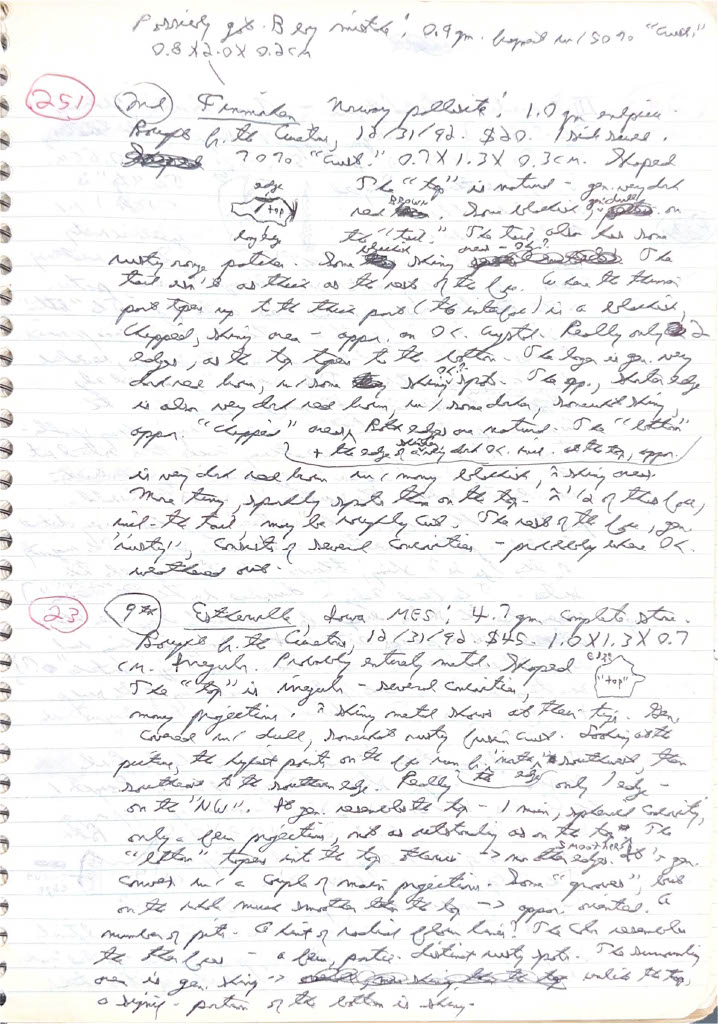 Possibly got B by mistake: 0.9 gm. fragment w/ 50% "crust."
0.8 X 2.0 X 0.2 cm
251 2nd Finmarken Norway pallasite: 1.0 gm endpiece.
Bought fr. the Curator, 12/31/92. $20. 1 side sawed.
70% "crust." 0.7 X 1.3 X 0.3 cm. Shaped
edge The "top" is natural - gen. very dark
"top" red BROWN. Some blackish gen. dull on
the "tail." The tail also has some
rusty orange patches. Some blackish shiny area - OL? The
tail isn't as thick as the rest of the face. Where the thinner
part tapers up to the thick part (the interface) is a blackish,
chipped, shiny area - appar. an OL. crystal. Really only 2
edges, as the top tapers to the bottom. The larger is gen. very
dark red brown, w/ some shiny OL? spots. The opp., shorter edge
is also very dark red brown, w/ some darker, somewhat shiny,
appar. "chipped" areas. Both edges are natural. The "bottom"
+ the edge of a shiny very dark OL. at the top, appar.
is very dark red brown w/ many blackish, shiny areas.
More tiny, sparkly spots than on the top. ~1/2 of this face,
incl. the tail, may be roughly cut. The rest of the face, gen.
"rusty", consists of several concavities - probably where OL.
weathered out.
23 9th Estherville, Iowa MES: 4.7 gm. complete stone.
Bought fr. the Curator, 12/31/92. $45. 1.0 X 1.3 X 0.7
cm. Irregular. Probably entirely metal. Shaped edge
The "top" is irregular - several concavities, "top"
many projections. shiny metal shows at their tips. Gen.
covered w/ dull, somewhat rusty fusion crust. Looking at the
picture, the highest points on the face run fr. "north" to southwest, then
southeast to the southern edge. Really only 1 edge -
on the "NW". It gen. resembles the top - 1 main, spherical concavity,
only a few projections, not as outstanding as on the top. The
"bottom" tapers into the top otherwise -> no other edges. It's SMOOTHER & gen.
convex w/ a couple of main projections. Some "grooves", but
on the whole much smoother than the top -> appar. oriented. A
number of pits. A hint of radial flow lines! The color resembles
the other faces - a few, partic. distinct rusty spots. The surrounding
area is gen. shiny -> unlike the top,
a signif. portion of the bottom is shiny.